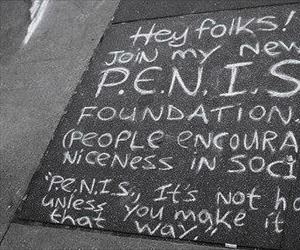 Hey folks!
JOIN MY NEW
P.E.N.I.S
FOUNDATION
(PEOPLE ENCOURA
NICENESS IN SOCI
"P.E.N.I.S., IT'S not ha
unless you make it
that way."